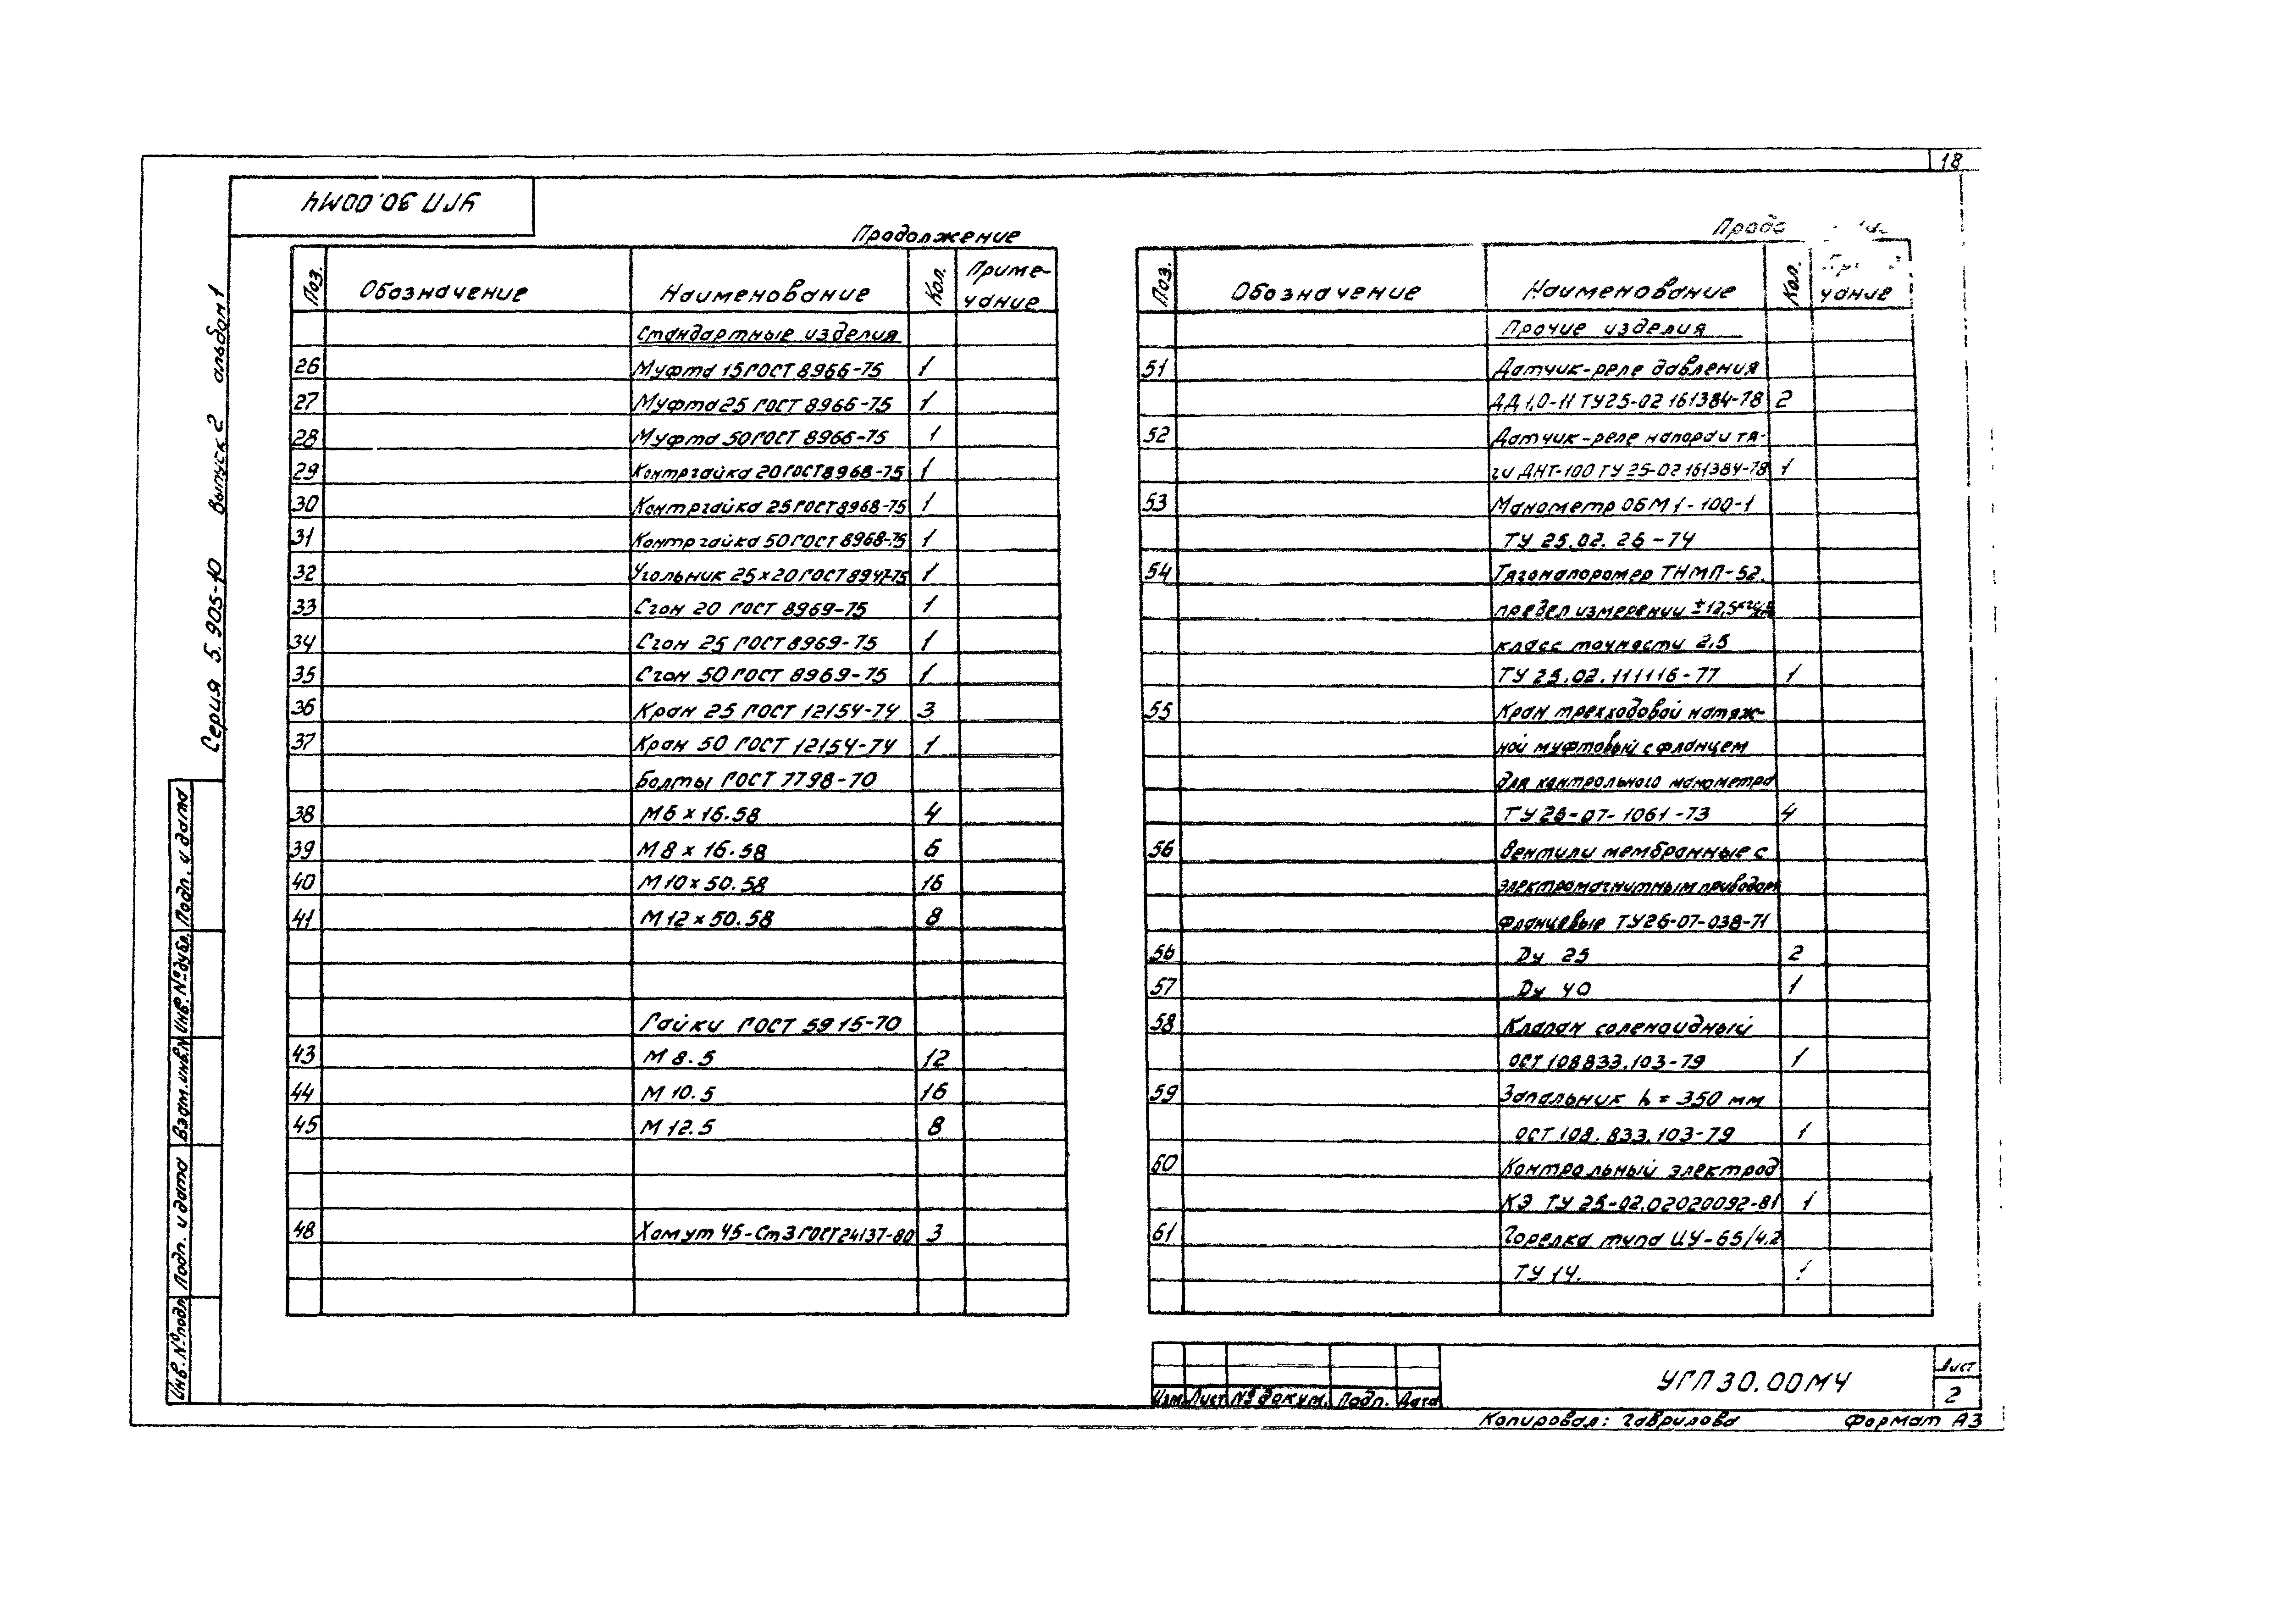 18
УГП 30.00МЧ
Серия 5.905-10 Выпуск 2 альбом 1
Продолжение
Поз. Обозначение Наименование Кол. Приме-
чание
Стандартные изделия
26 Муфта 15 ГОСТ 8966-75 1
27 Муфта 25 ГОСТ 8966-75 1
28 Муфта 50 ГОСТ 8966-75 1
29 Контргайка 20 ГОСТ 8968-75 1
30 Контргайка 25 ГОСТ 8968-75 1
31 Контргайка 50 ГОСТ 8968-75 1
32 Угольник 25×20 ГОСТ 8947-75 1
33 Сгон 20 ГОСТ 8969-75 1
34 Сгон 25 ГОСТ 8969-75 1
35 Сгон 50 ГОСТ 8969-75 1
36 Кран 25 ГОСТ 12154-74 3
37 Кран 50 ГОСТ 12154-74 1
Болты ГОСТ 7798-70
38 М6 × 16.58 4
39 М8 × 16.58 6
40 М10 × 50.58 16
41 М12 × 50.58 8
Гайки ГОСТ 5915-70
43 М 8.5 12
44 М 10.5 16
45 М 12.5 8
48 Хомут 45-Ст3 ГОСТ 24137-80 3
Поз. Обозначение Наименование Кол.
чание
Прочие изделия
51 Датчик-реле давления
ДД 1,0-11 ТУ 25-02 161384-78 2
52 Датчик-реле напора и тя-
ги ДНТ-100 ТУ 25-02 161384-78 1
53 Манометр ОБМ 1-100-1
ТУ 25.02. 26-74
54 Тягонапоромер ТНМП-52.
предел измерений ±12,5
класс точности 2,5
ТУ 25.02.111116-77 1
55 Кран трехходовой натяж-
ной муфтовый с фланцем
для контрольного манометра
ТУ 26-07-1061-73 4
56 Вентили мембранные с
электромагнитным приводом
фланцевые ТУ 26-07-038-71
56 Ду 25 2
57 Ду 40 1
58 Клапан соленоидный
ОСТ 108 833.103-79 1
59 Запальник h = 350 мм
ОСТ 108.833.103-79 1
60 Контрольный электрод
КЭ ТУ 25-02.02020092-81 1
61 Горелка типа ЦУ-65/4,2
ТУ 14. 1
Инв. № подл. Подп. и дата Взам. инв. № Инв. № дубл. Подп. и дата
Изм Лист № докум. Подп. Дата
УГП 30.00МЧ
Лист
2
Копировал: Гаврилова Формат А3